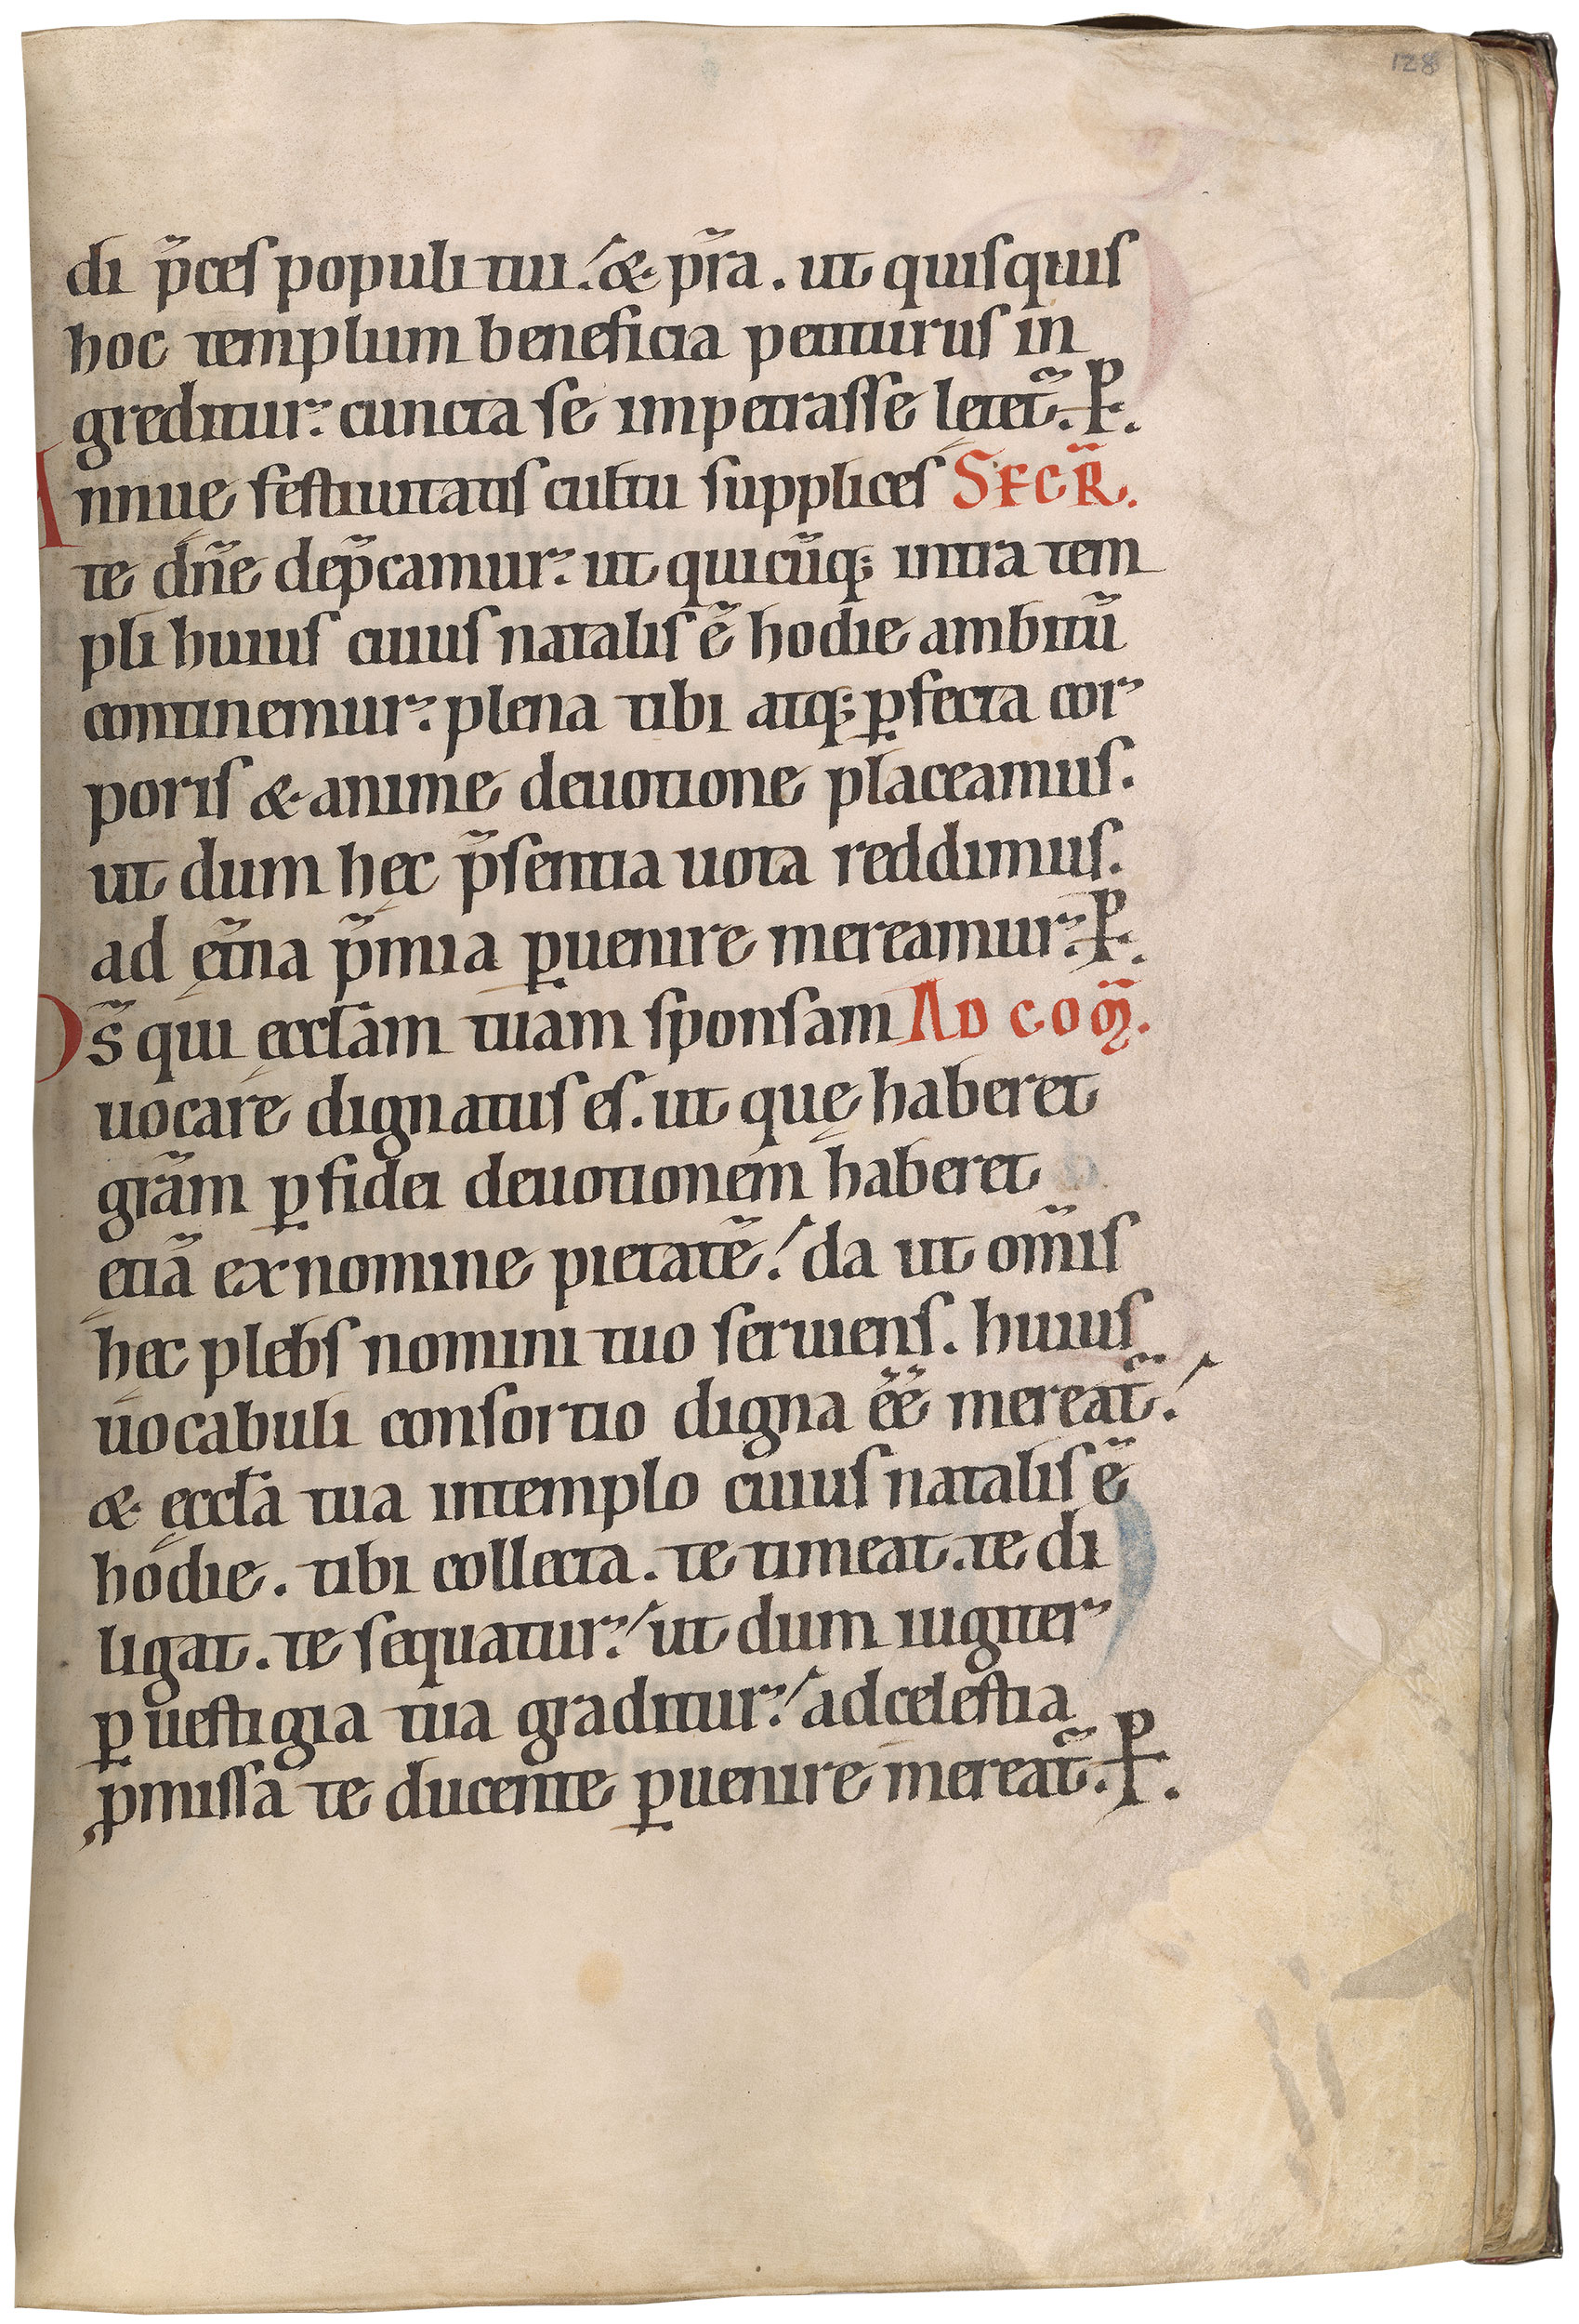 128
di p̃ces populi tui. & pr̃a. ut quisquis
hoc templum beneficia petiturus in
greditur. cuncta se impetrasse letet̃. P.
Annue festiuitatis cultu supplices SECR̃.
te dñe dep̃camur. ut quicũq; intra tem
pli huius cuius natalis ẽ hodie ambitũ
continemur. plena tibi atq; ꝑfecta cor
poris & anime deuotione placeamus.
ut dum hęc p̃sentia uota reddimus.
ad ęt̃na p̃mia ꝑuenire mereamur. P.
Ds̃ qui ęccl̃am tuam sponsam AD COM̃.
uocare dignatus es. ut quę haberet
gr̃am ꝑ fidei deuotionem haberet
ętiã ex nomine pietatẽ. da ut om̃is
hęc plebs nomini tuo seruiens. huius
uocabuli consortio digna ẽẽ mereat̃.
& ęccl̃a tua in templo cuius natalis ẽ
hodie. tibi collecta. te timeat. te di
ligat. te sequatur. ut dum iugiter
ꝑ uestigia tua graditur. ad celestia
ꝓmissa te ducente ꝑuenire mereat̃. P.